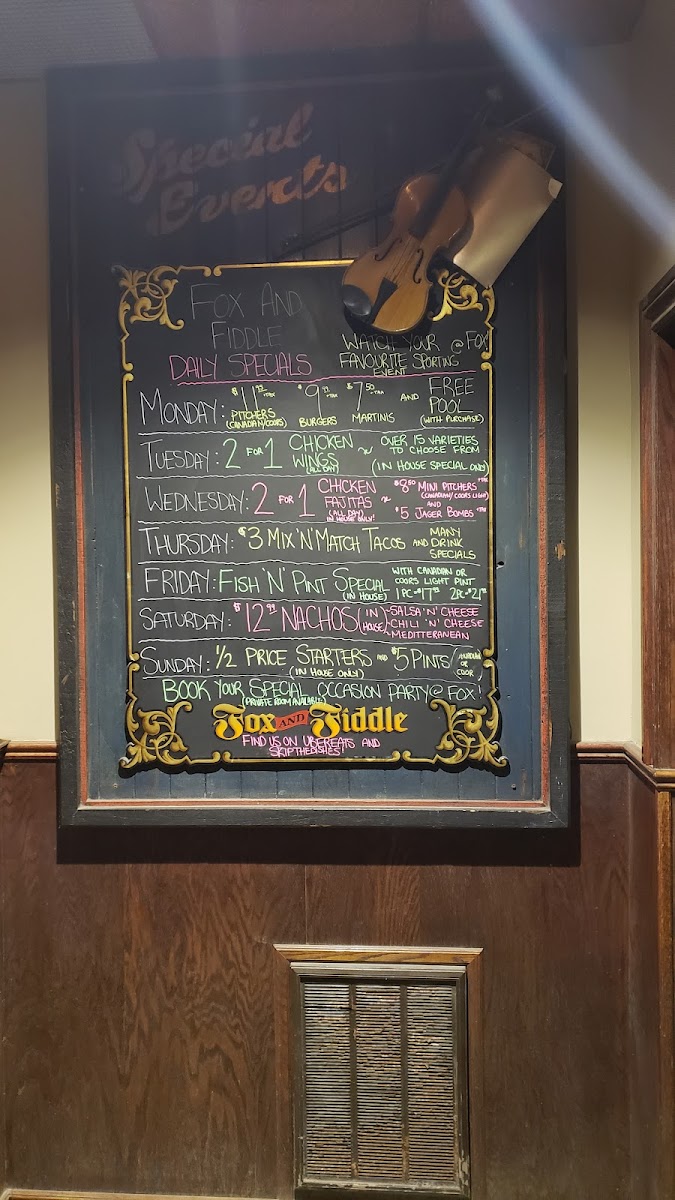 Special
Events
FOX AND
FIDDLE
DAILY SPECIALS
WATCH YOUR @ FOX
FAVOURITE SPORTING
EVENT
MONDAY: $11.99 +TAX PITCHERS (CANADIAN/COORS) $9.99 +TAX BURGERS $7.50 +TAX MARTINIS AND FREE POOL (WITH PURCHASE)
TUESDAY: 2 FOR 1 CHICKEN WINGS (ALL DAY) ~ OVER 15 VARIETIES TO CHOOSE FROM (IN HOUSE SPECIAL ONLY)
WEDNESDAY: 2 FOR 1 CHICKEN FAJITAS (ALL DAY) IN HOUSE ONLY! ~ $8.50 MINI PITCHERS +TAX (CANADIAN/COORS LIGHT) AND $5 JAGER BOMBS +TAX
THURSDAY: $3 MIX 'N' MATCH TACOS AND MANY DRINK SPECIALS
FRIDAY: FISH 'N' PINT SPECIAL (IN HOUSE) WITH CANADIAN OR COORS LIGHT PINT 1PC-$17.99 2PC-$21.99
SATURDAY: $12.99 NACHOS (IN HOUSE) -SALSA 'N' CHEESE -CHILI 'N' CHEESE -MEDITTERANEAN
SUNDAY: 1/2 PRICE STARTERS (IN HOUSE ONLY) AND $5 PINTS/ OR
BOOK YOUR SPECIAL OCCASION PARTY @ FOX!
(PRIVATE ROOM AVAILABLE)
Fox AND Fiddle
FIND US ON UBEREATS AND
SKIPTHEDISHES!